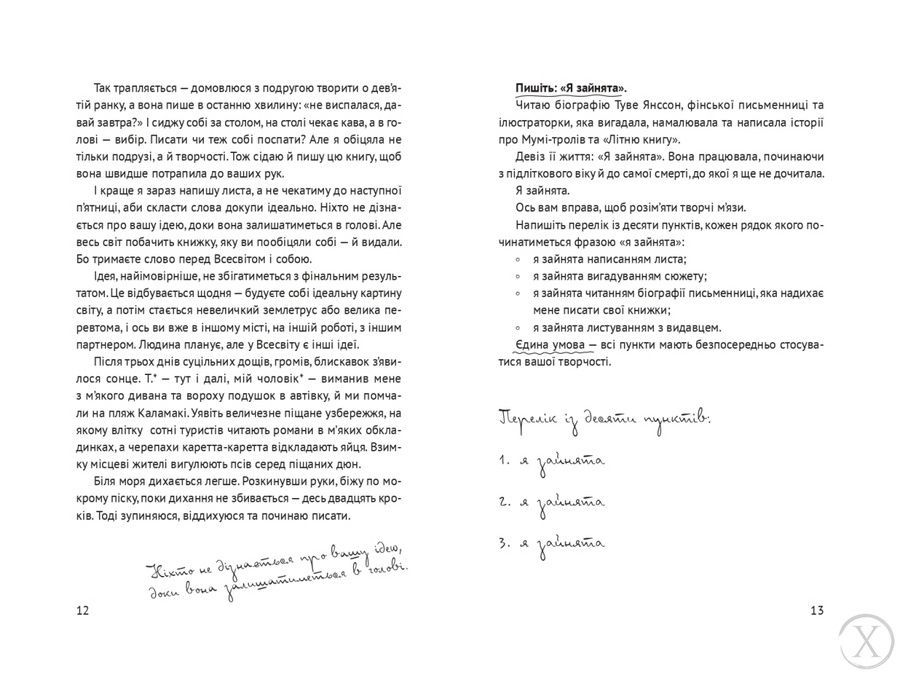 Так трапляється — домовлюся з подругою творити о дев'я-
тій ранку, а вона пише в останню хвилину: «не виспалась, да-
вай завтра?» І сиджу собі за столом, на столі чекає кава, а в го-
лові — вибір. Писати чи теж собі поспати? Але я обіцяла не
тільки подрузі, а й творчості. Тож сідаю й пишу цю книгу, щоб
вона швидше потрапила до ваших рук.
І краще я зараз напишу листа, а не чекатиму до наступної
п'ятниці, аби скласти слова докупи ідеально. Ніхто не дізна-
ється про вашу ідею, доки вона залишатиметься в голові. Але
весь світ побачить книжку, яку ви пообіцяли собі — й видали.
Бо тримаєте слово перед Всесвітом і собою.
Ідея, найімовірніше, не збігатиметься з фінальним резуль-
татом. Це відбувається щодня — будуєте собі ідеальну картину
світу, а потім стається невеличкий землетрус або велика пе-
ревтома, і ось ви вже в іншому місті, на іншій роботі, з іншим
партнером. Людина планує, але у Всесвіту є інші ідеї.
Після трьох днів суцільних дощів, громів, блискавок з'яви-
лося сонце. Т.* — тут і далі, мій чоловік* — виманив мене
з м'якого дивана та вороху подушок в автівку, й ми помча-
ли на пляж Каламакі. Уявіть величезне піщане узбережжя, на
якому влітку сотні туристів читають романи в м'яких обкла-
динках, а черепахи каретта-каретта відкладають яйця. Взим-
ку місцеві жителі вигулюють псів серед піщаних дюн.
Біля моря дихається легше. Розкинувши руки, біжу по мо-
крому піску, поки дихання не збивається — десь двадцять кро-
ків. Тоді зупиняюся, віддихуюся та починаю писати.
Ніхто не дізнається про вашу ідею,
доки вона залишатиметься в голові.
12
Пишіть: «Я зайнята».
Читаю біографію Туве Янссон, фінської письменниці та
ілюстраторки, яка вигадала, намалювала та написала історії
про Мумі-тролів та «Літню книгу».
Девіз її життя: «Я зайнята». Вона працювала, починаючи
з підліткового віку й до самої смерті, до якої я ще не дочитала.
Я зайнята.
Ось вам вправа, щоб розім'яти творчі м'язи.
Напишіть перелік із десяти пунктів, кожен рядок якого по-
чинатиметься фразою «я зайнята»:
◦ я зайнята написанням листа;
◦ я зайнята вигадуванням сюжету;
◦ я зайнята читанням біографії письменниці, яка надихає
мене писати свої книжки;
◦ я зайнята листуванням з видавцем.
Єдина умова — всі пункти мають безпосередньо стосува-
тися вашої творчості.
Перелік із десяти пунктів:
1. я зайнята
2. я зайнята
3. я зайнята
13
X